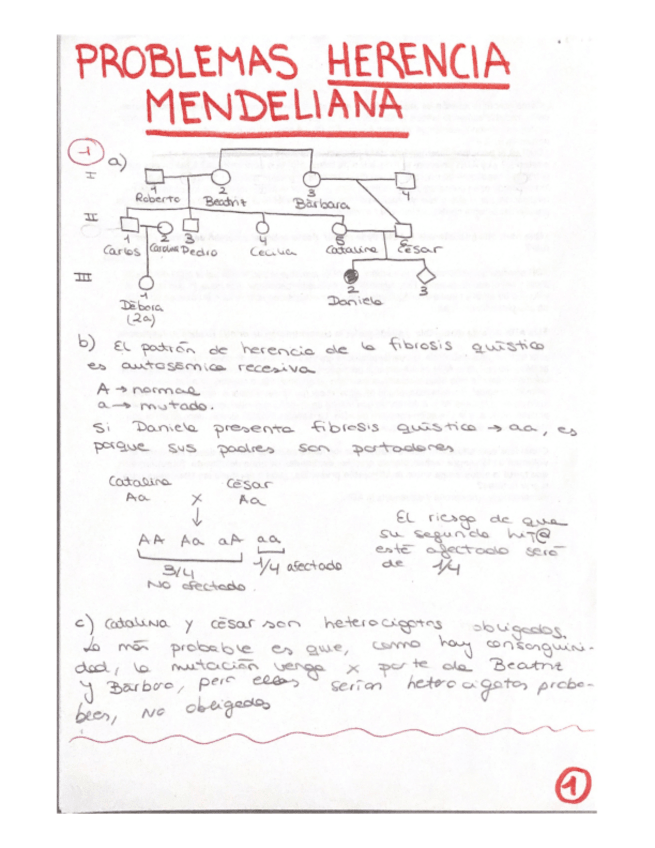 PROBLEMAS HERENCIA
MENDELIANA
1 a)
I
1 2 3 4
Roberto Beatriz Bárbara
II
1 2 3 4 5 6
Carlos Carolina Pedro Cecilia Catalina César
III
1 2 3
Débora Daniela
(2a)
b) El patrón de herencia de la fibrosis quística
es autosómica recesiva
A → normal
a → mutado.
Si Daniela presenta fibrosis quística → aa, es
porque sus padres son portadores
Catalina César
Aa x Aa
↓
AA Aa aA aa
3/4 1/4 afectado
No afectado
El riesgo de que
su segundo hij@
esté afectado será
de 1/4
c) Catalina y César son heterocigotos obligados.
Lo más probable es que, como hay consanguini-
dad, la mutación venga x parte de Beatriz
y Bárbara, pero ellas serían heterocigotos proba-
bles, NO obligados
1